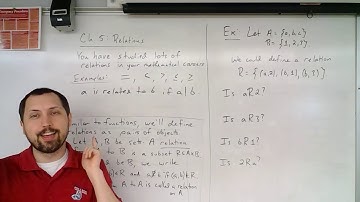 Ch 5: Relations
You have studied lots of
relations in your mathematical careers
Examples: =, <, ?, ≤, ≥
a is relates to b if a|b.
Similar to functions, we'll define
relations as pairs of objects.
Let , B be sets. A relation
to B is a subset R⊆A×B.
b∈B, we write
)∈R and if (a,b)∉R.
A to A is called a relation
on A
Ex: Let A = {a,b,c}
B = {1,2,3}
We will define a relation
R = {(a,2), (b,1), (b,3)}
Is aR2?
Is aR3?
Is bR1?
Is 2Ra?